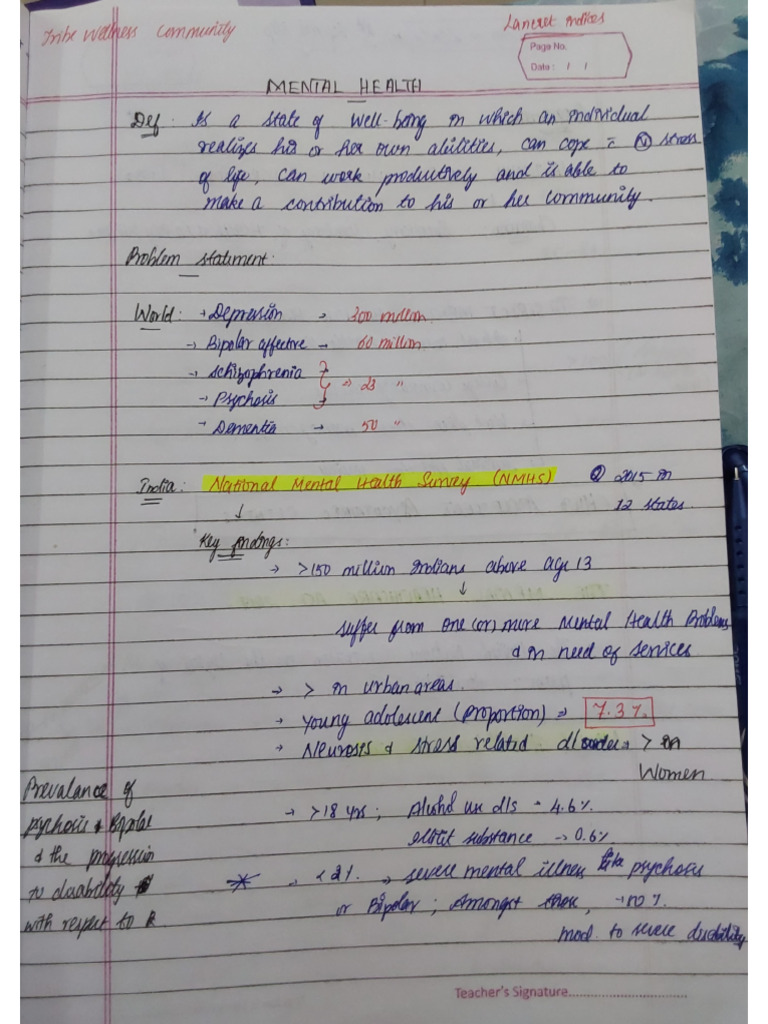 Tribe Wellness Community
Lancet indices
Page No.
Date: / /
MENTAL HEALTH
Def: Is a state of well-being in which an individual
realizes his or her own abilities, can cope c̄ (N) stress
of life, can work productively and is able to
make a contribution to his or her community.
Problem statement:
World: → Depression → 300 million
→ Bipolar affective → 60 million
→ Schizophrenia
→ Psychosis } → 23 "
→ Dementia → 50 "
India: National Mental Health Survey (NMHS) 2015 in
12 states.
↓
Key findings:
→ >150 million Indians above age 13
↓
suffer from one (or) more Mental Health Problems
& in need of services
→ > in urban areas.
→ Young adolescent (proportion) ⇒ 7.3%
→ Neurosis & stress related → > in
Women
→ >18 yrs; Alcohol use d/s - 4.6%
illicit substance → 0.6%
* → <2% → severe mental illness like psychosis
or Bipolar; Amongst those,
mod. to severe disability
Prevalance of
psychosis & Bipolar
& the progression
to disability
with respect to
Teacher's Signature